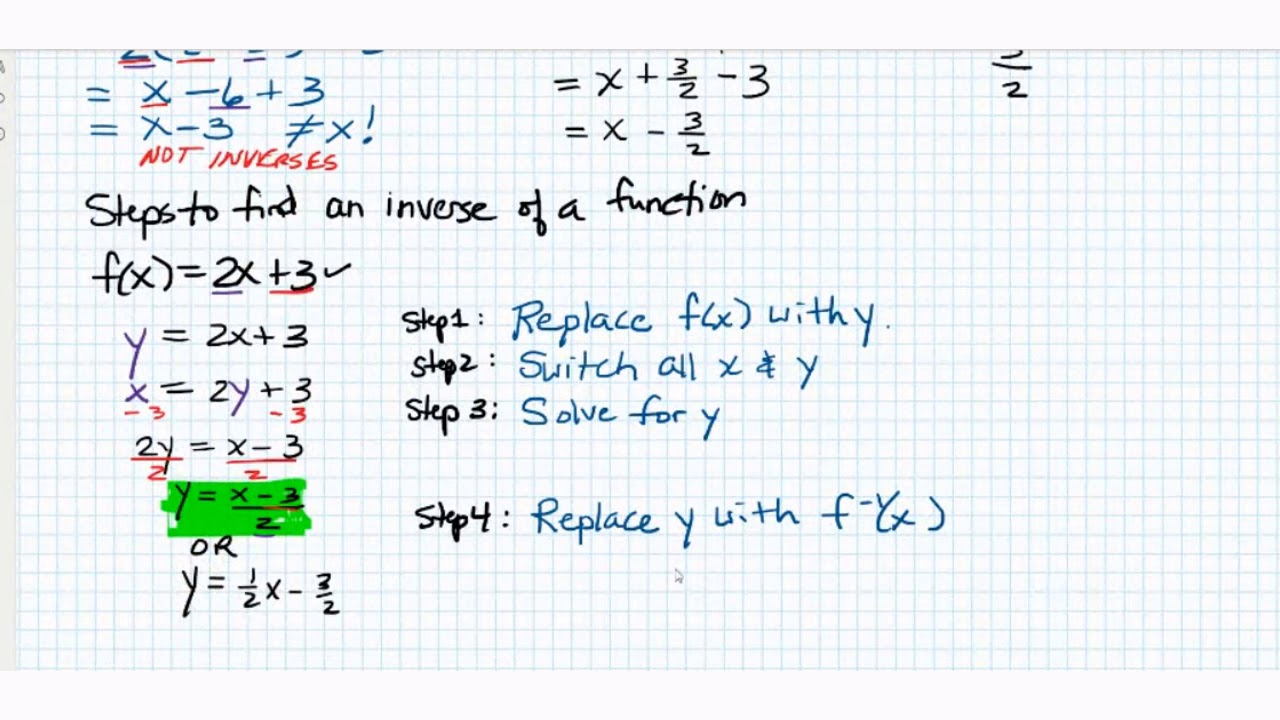 = x - 6 + 3
= x - 3 ≠ x!
NOT INVERSES
= x + 3/2 - 3
= x - 3/2
3/2
Steps to find an inverse of a function
f(x) = 2x + 3 ✓
y = 2x + 3
x = 2y + 3
- 3 - 3
2y/2 = x - 3/2
y = x - 3/2
OR
y = 1/2 x - 3/2
Step 1: Replace f(x) with y.
Step 2: Switch all x & y
Step 3: Solve for y
Step 4: Replace y with f⁻¹(x)